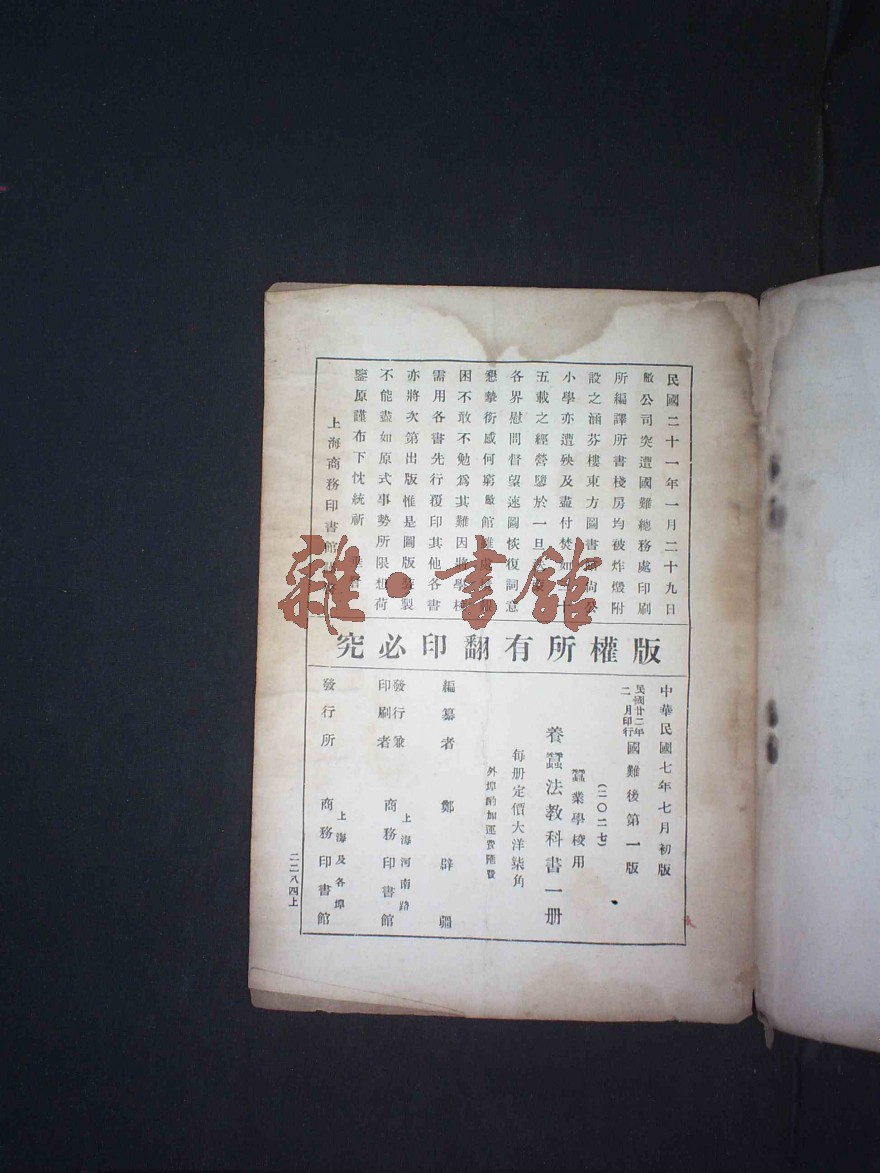 民國二十一年一月二十九日
敝公司突遭國難總務處印刷
所編譯所書棧房均被炸燬附
設之涵芬樓東方圖書館尚公
小學亦遭殃及盡付焚如三十
五載之經營隳於一旦
各界慰問督望速圖恢復詞意
懇摯銜感何窮敝館雖處
困不敢不勉爲其難因將學校
需用各書先行覆印其他各書
亦將次第出版惟是圖版裝製
不能盡如原式事勢所限想荷
鑒原謹布下忱統祈
上海商務印書館
版權所有翻印必究
中華民國七年七月初版
民國廿二年二月印行國難後第一版
(二〇二七)
蠶業學校用
養蠶法教科書一册
每册定價大洋柒角
外埠酌加運費匯費
編纂者 鄭辟疆
發行兼印刷者 上海河南路 商務印書館
發行所 上海及各埠 商務印書館
二二八四上
雜·書館